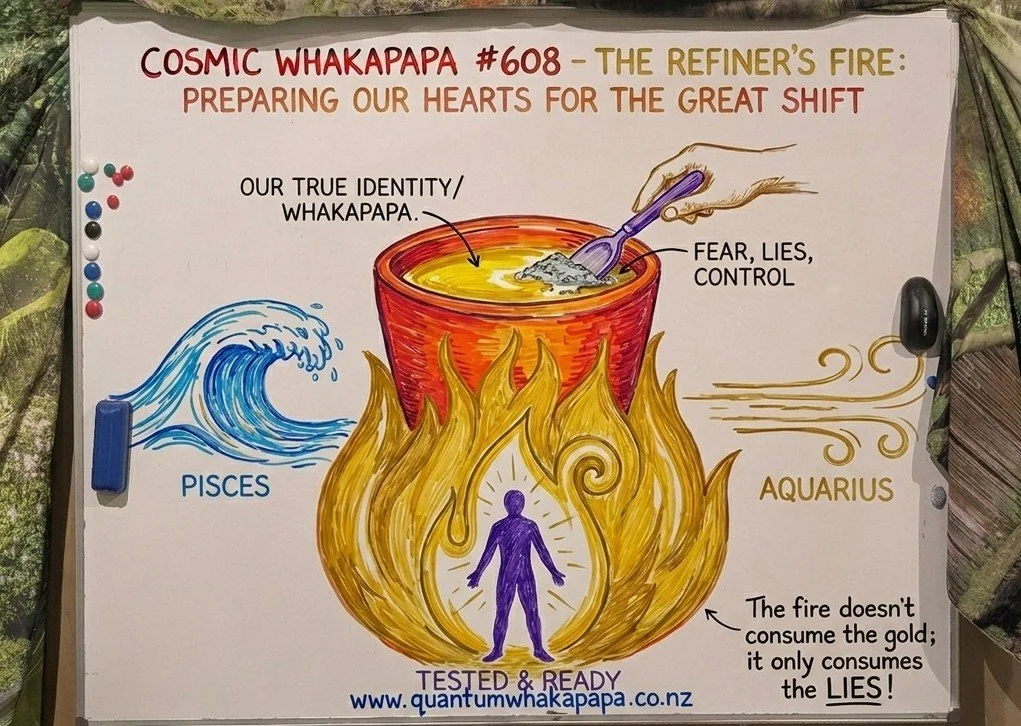 COSMIC WHAKAPAPA #608 - THE REFINER'S FIRE:
PREPARING OUR HEARTS FOR THE GREAT SHIFT
OUR TRUE IDENTITY/
WHAKAPAPA.
FEAR, LIES,
CONTROL
PISCES
AQUARIUS
The fire doesn't
consume the gold;
it only consumes
the LIES!
TESTED & READY
www.quantumwhakapapa.co.nz